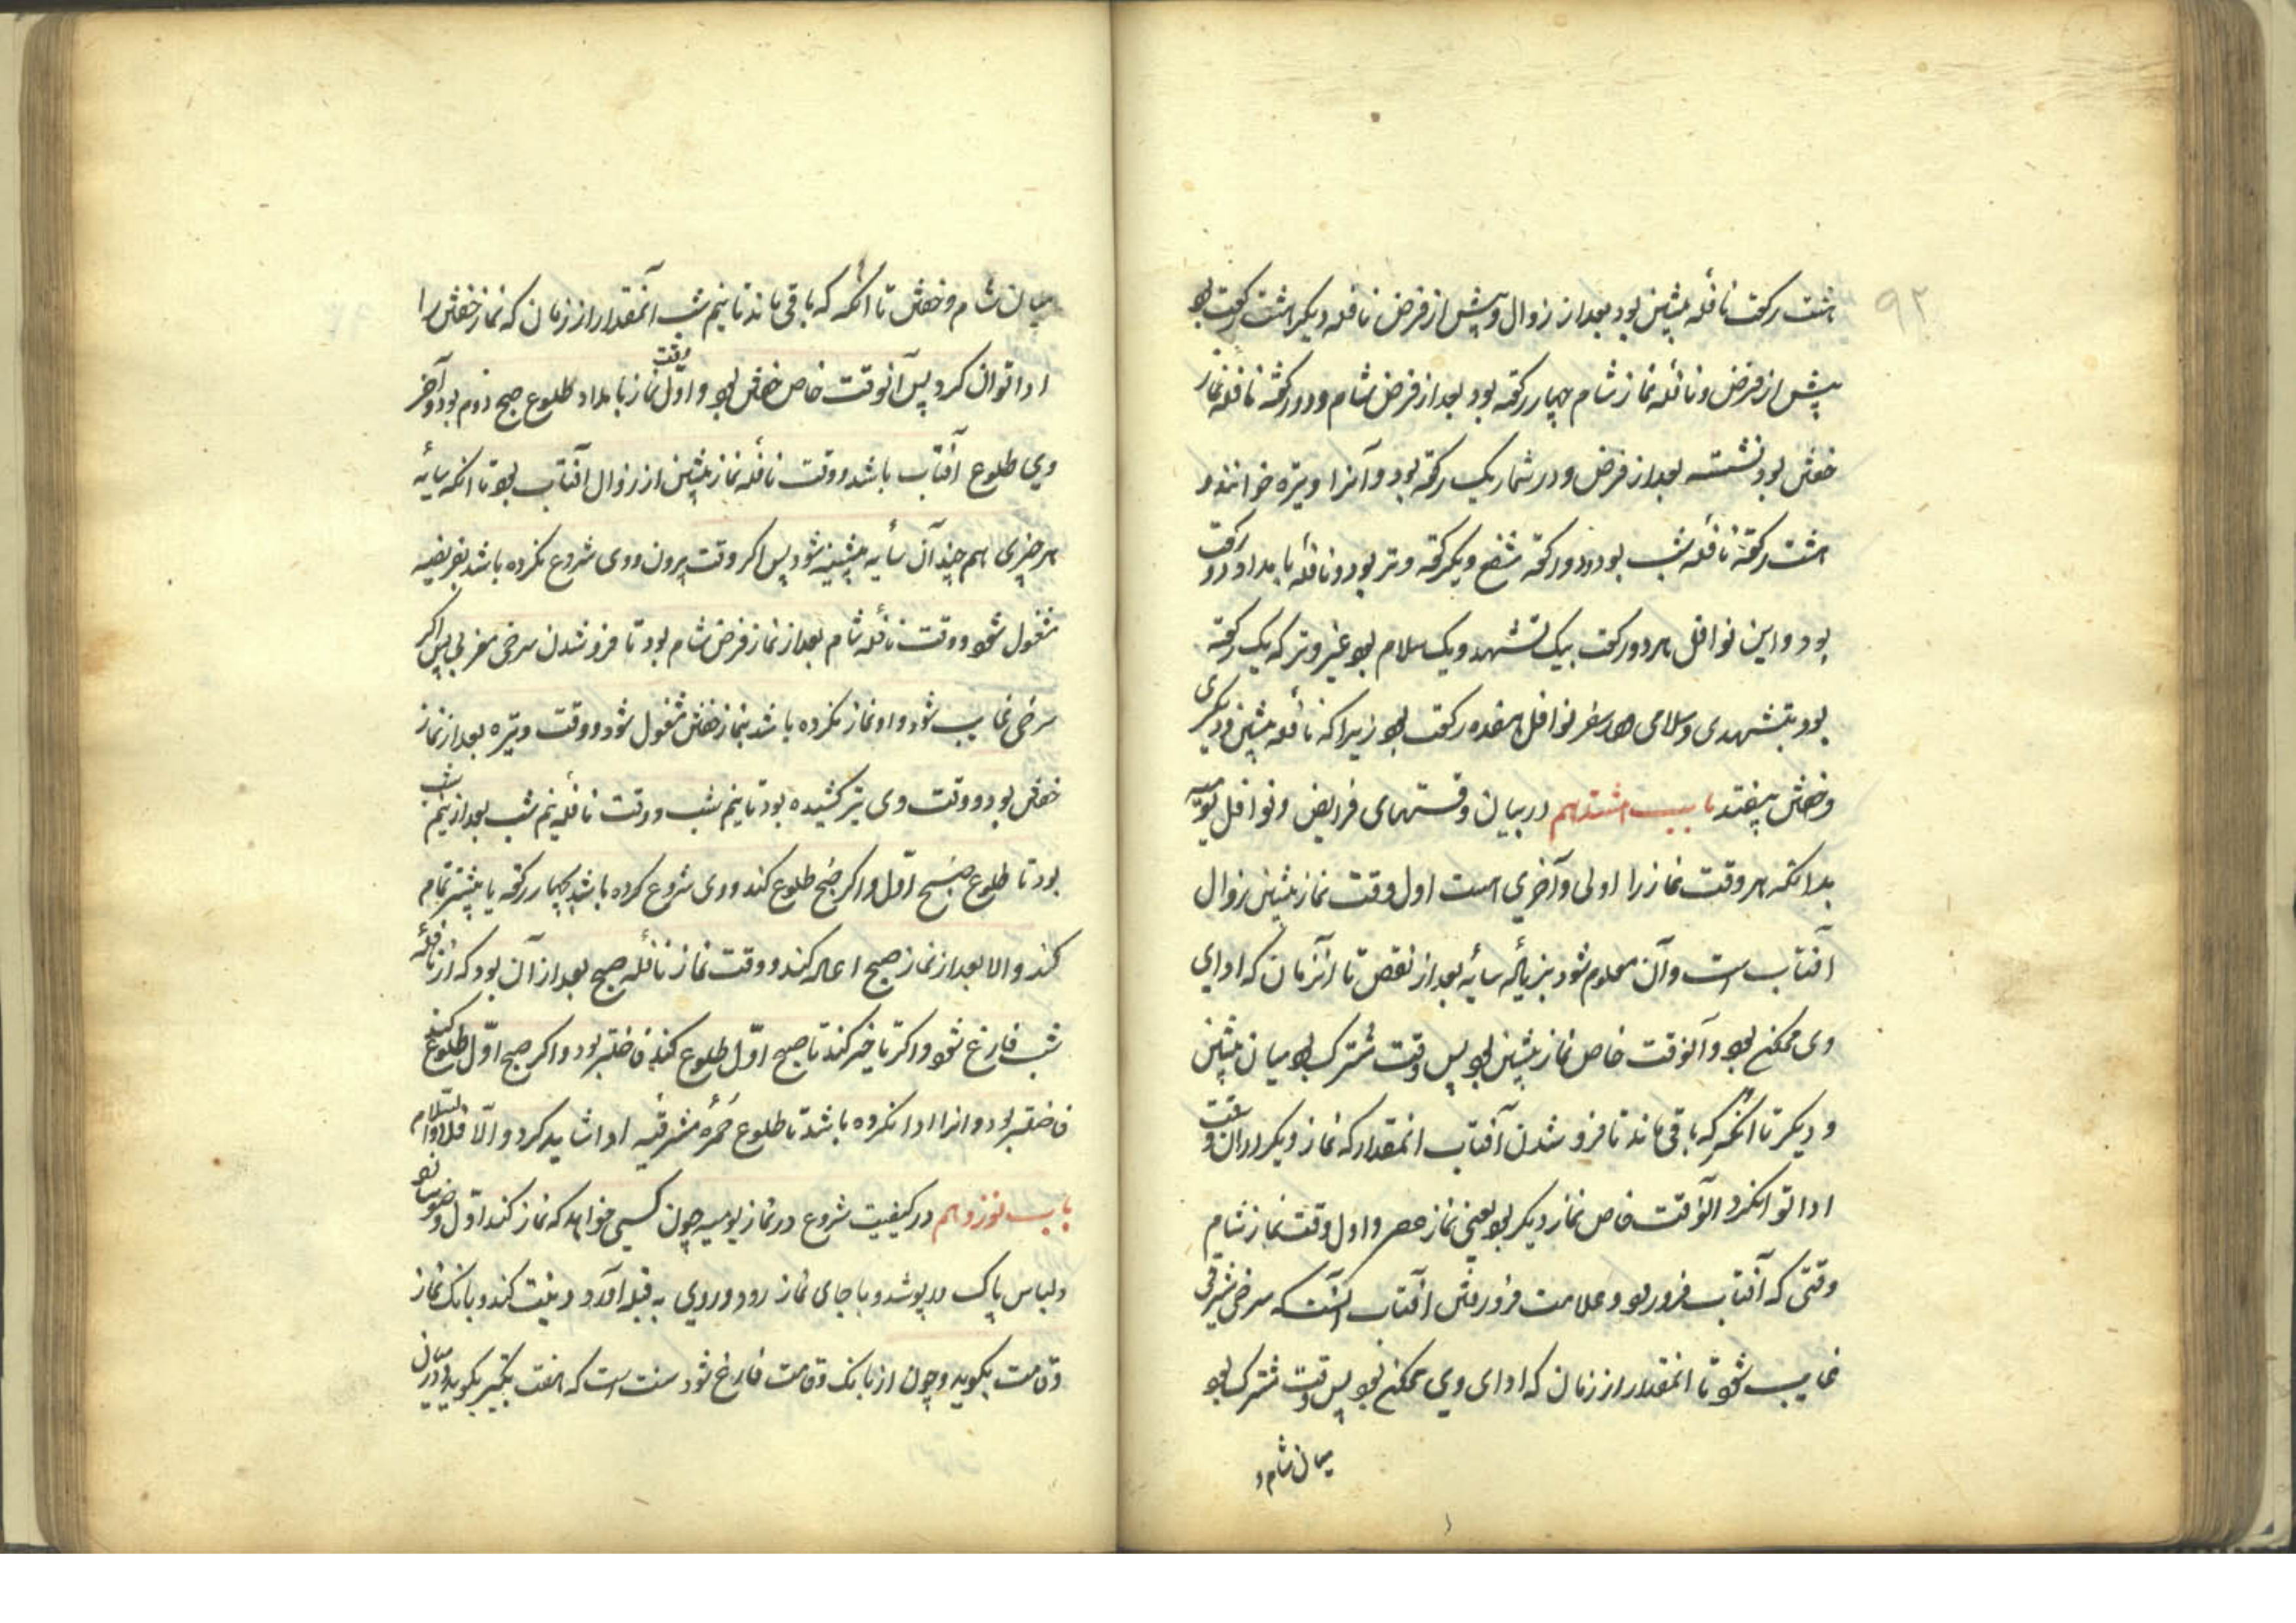 ۹۲
هشت رکعت نافله پیشین بود بعد از زوال و پیش از فرض نافله دیگر هشت رکعت بود
پیش از فرض و نافله نماز شام چهار رکعه بود بعد از فرض شام و دو رکعه نافله نماز
خفتن بود نشسته بعد از فرض و در شمار یک رکعه بود و آنرا وتیره خوانند و
هشت رکعه نافله شب بود و دو رکعه شفع و یکرکعه وتر بود و نافله بامداد دو رکعت
بود و این نوافل هر دو رکعت بیک تشهد و یک سلام بود غیر وتر که یک رکعه
بود بتشهدی و سلامی در سفر نوافل هفده رکعت بود زیرا که نافله پیشین و دیگری
و خفتن بیفتد باب هشتدهم در بیان وقتهای فرایض و نوافل یومیه
بدانکه هر وقت نماز را اولی و آخری است اول وقت نماز پیشین زوال
آفتاب است و آن معلوم شود بزیاده سایه بعد از نقص تا آنزمان که ادای
وی ممکن بود و آنوقت خاص نماز پیشین بود پس وقت مشترک بود میان پیشین
و دیگر تا آنگه که باقی ماند تا فرو شدن آفتاب انمقدار که نماز دیگر در آن وقت
ادا توانکرد آنوقت خاص نماز دیگر بود یعنی نماز عصر و اول وقت نماز شام
وقتی که آفتاب فرو رود و علامت فرو رفتن آفتاب آنست که سرخی مشرقی
غایب شود تا انمقدار از زمان که ادای وی ممکن بود پس وقت مشترک بود
میان شام و
میان شام و خفتن تا آنگه که باقی ماند تا نیم شب آنمقدار از زمان که نماز خفتن را
ادا توان کرد پس آنوقت خاص خفتن بود و اوّل وقت نماز بامداد طلوع صبح دوم بود و آخر
وی طلوع آفتاب باشد و وقت نافله نماز پیشین از زوال آفتاب بود تا آنکه سایه
هر چیزی هم چند آن سایه پیشینه شود پس اگر وقت بیرون رود و وی شروع نکرده باشد بفریضه
مشغول شود و وقت نافله شام بعد از نماز فرض شام بود تا فرو شدن سرخی مغربی پس اگر
سرخی غایب شود و او نماز نکرده باشد بنماز خفتن مشغول شود و وقت وتیره بعد از نماز
خفتن بود و وقت وی نیز کشیده بود تا نیم شب و وقت نافله نیم شب بعد از نیم شب
بود تا طلوع صبح اوّل و اگر صبح طلوع کند و وی شروع کرده باشد بچهار رکعه یا بیشتر تمام
کند و الا بعد از نماز صبح اعاده کند و وقت نماز نافله صبح بعد از آن بود که از نافله
شب فارغ شود و اگر تاخیر کند تا صبح اوّل طلوع کند فاضلتر بود و اگر صبح اوّل طلوع کند
فاضلتر بود و انرا ادا نکرده باشد تا طلوع حُمرهٔ مشرقیه ادا شاید کرد و الّا فلا والسلام
باب نوزدهم در کیفیت شروع در نماز یومیه چون کسی خواهد که نماز کند اوّل وضو سازد
و لباس پاک در پوشد و با جای نماز رود و روی به قبله آورد و نیت کند و بانک نماز
و قامت بگوید و چون از بانک و قامت فارغ شود سنت است که هفت تکبیر بگوید و در میان